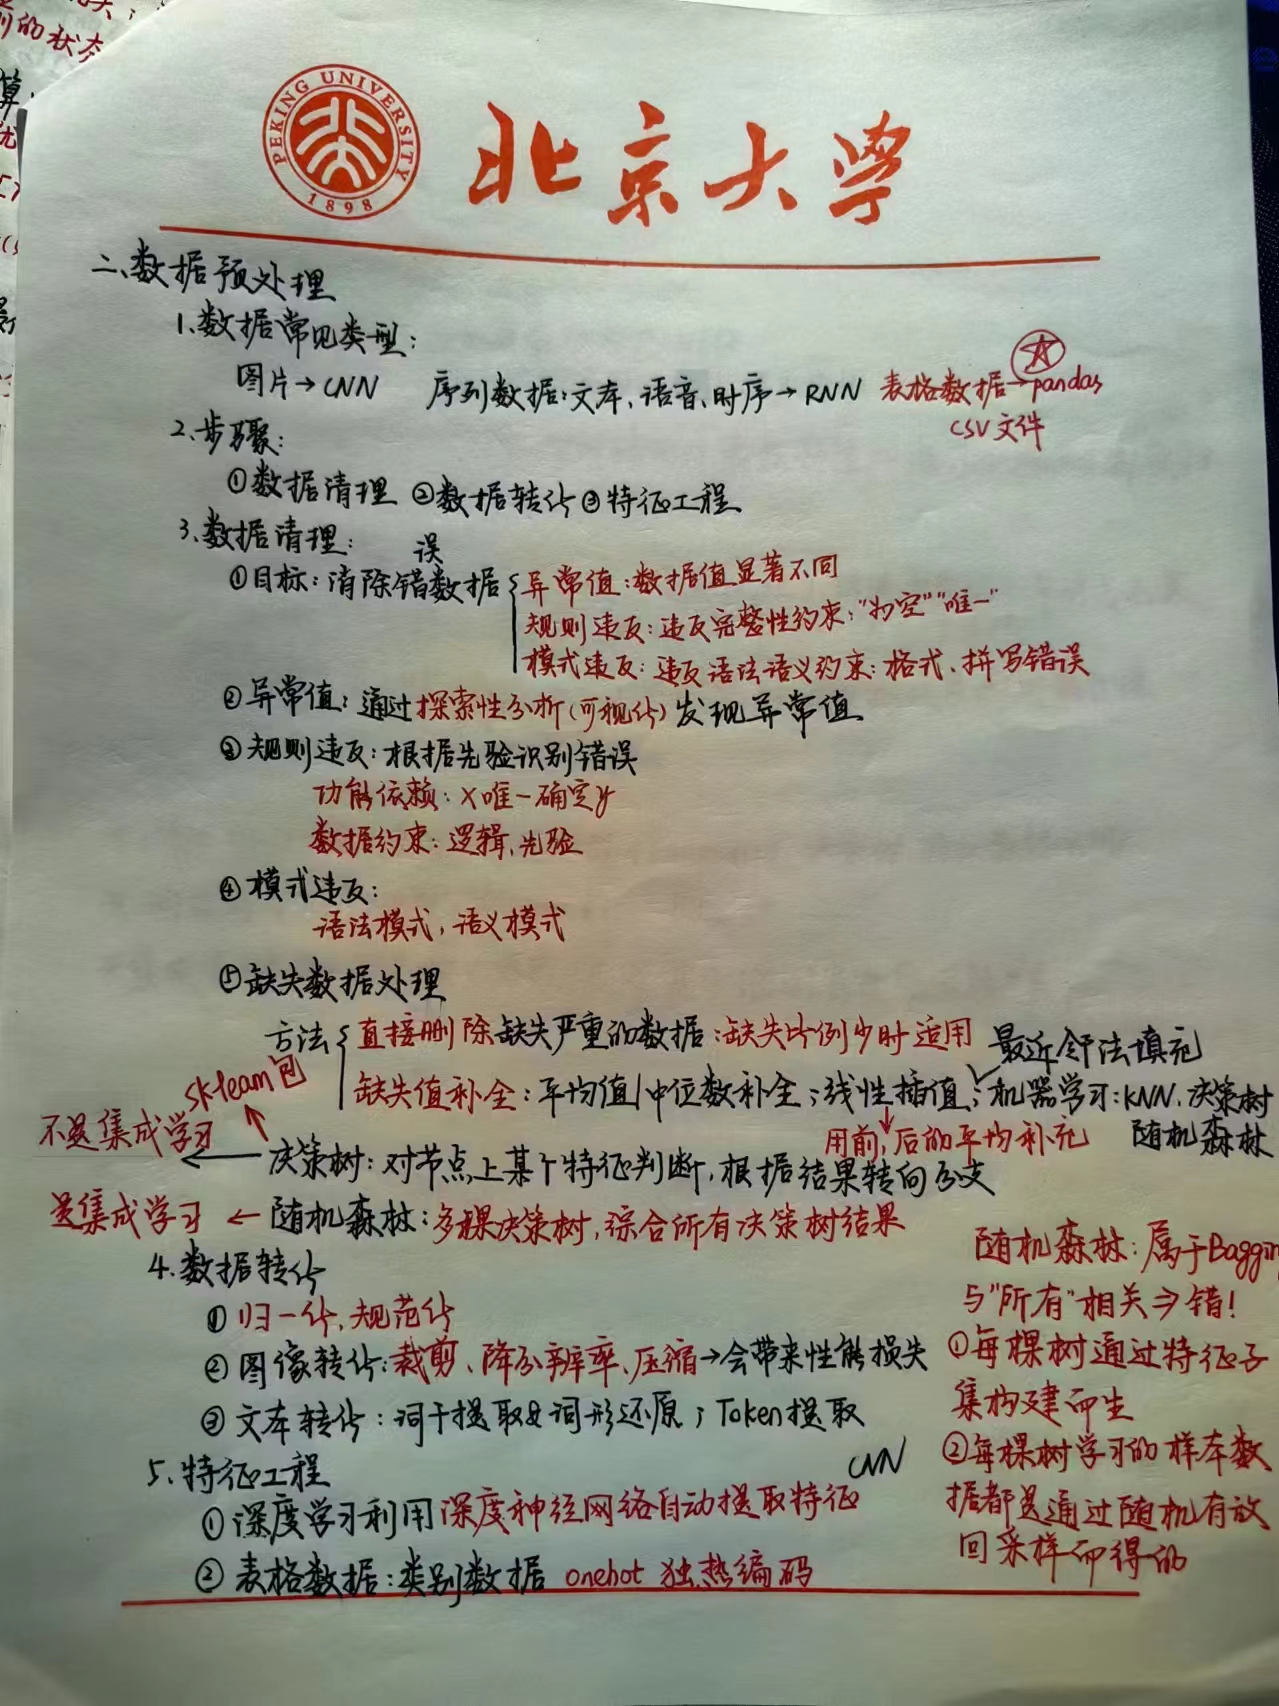 PEKING UNIVERSITY
1898
北京大学
二、数据预处理
1.数据常见类型:
图片→CNN 序列数据:文本、语音、时序→RNN 表格数据→pandas
CSV文件
2.步骤:
①数据清理 ②数据转化 ③特征工程
3.数据清理:
误
①目标:消除错数据
异常值:数据值显著不同
规则违反:违反完整性约束:"为空""唯一"
模式违反:违反语法语义约束:格式、拼写错误
②异常值:通过探索性分析(可视化)发现异常值
③规则违反:根据先验识别错误
功能依赖:x唯一确定y
数据约束:逻辑、先验
④模式违反:
语法模式,语义模式
⑤缺失数据处理
方法
直接删除缺失严重的数据:缺失比例少时适用
最近邻法填充
缺失值补全:平均值/中位数补全;线性插值;机器学习:KNN、决策树
随机森林
用前,后的平均补充
sklearn包
不是集成学习
决策树:对节点上某个特征判断,根据结果转向分支
是集成学习←随机森林:多棵决策树,综合所有决策树结果
4.数据转化
①归一化、规范化
②图像转化:裁剪、降分辨率、压缩→会带来性能损失
③文本转化:词干提取&词形还原;Token提取
5、特征工程
CNN
①深度学习利用深度神经网络自动提取特征
②表格数据:类别数据 onehot 独热编码
随机森林:属于Baggin
与"所有"相关⇒错!
①每棵树通过特征子
集构建而生
②每棵树学习的样本数
据都是通过随机有放
回采样而得的